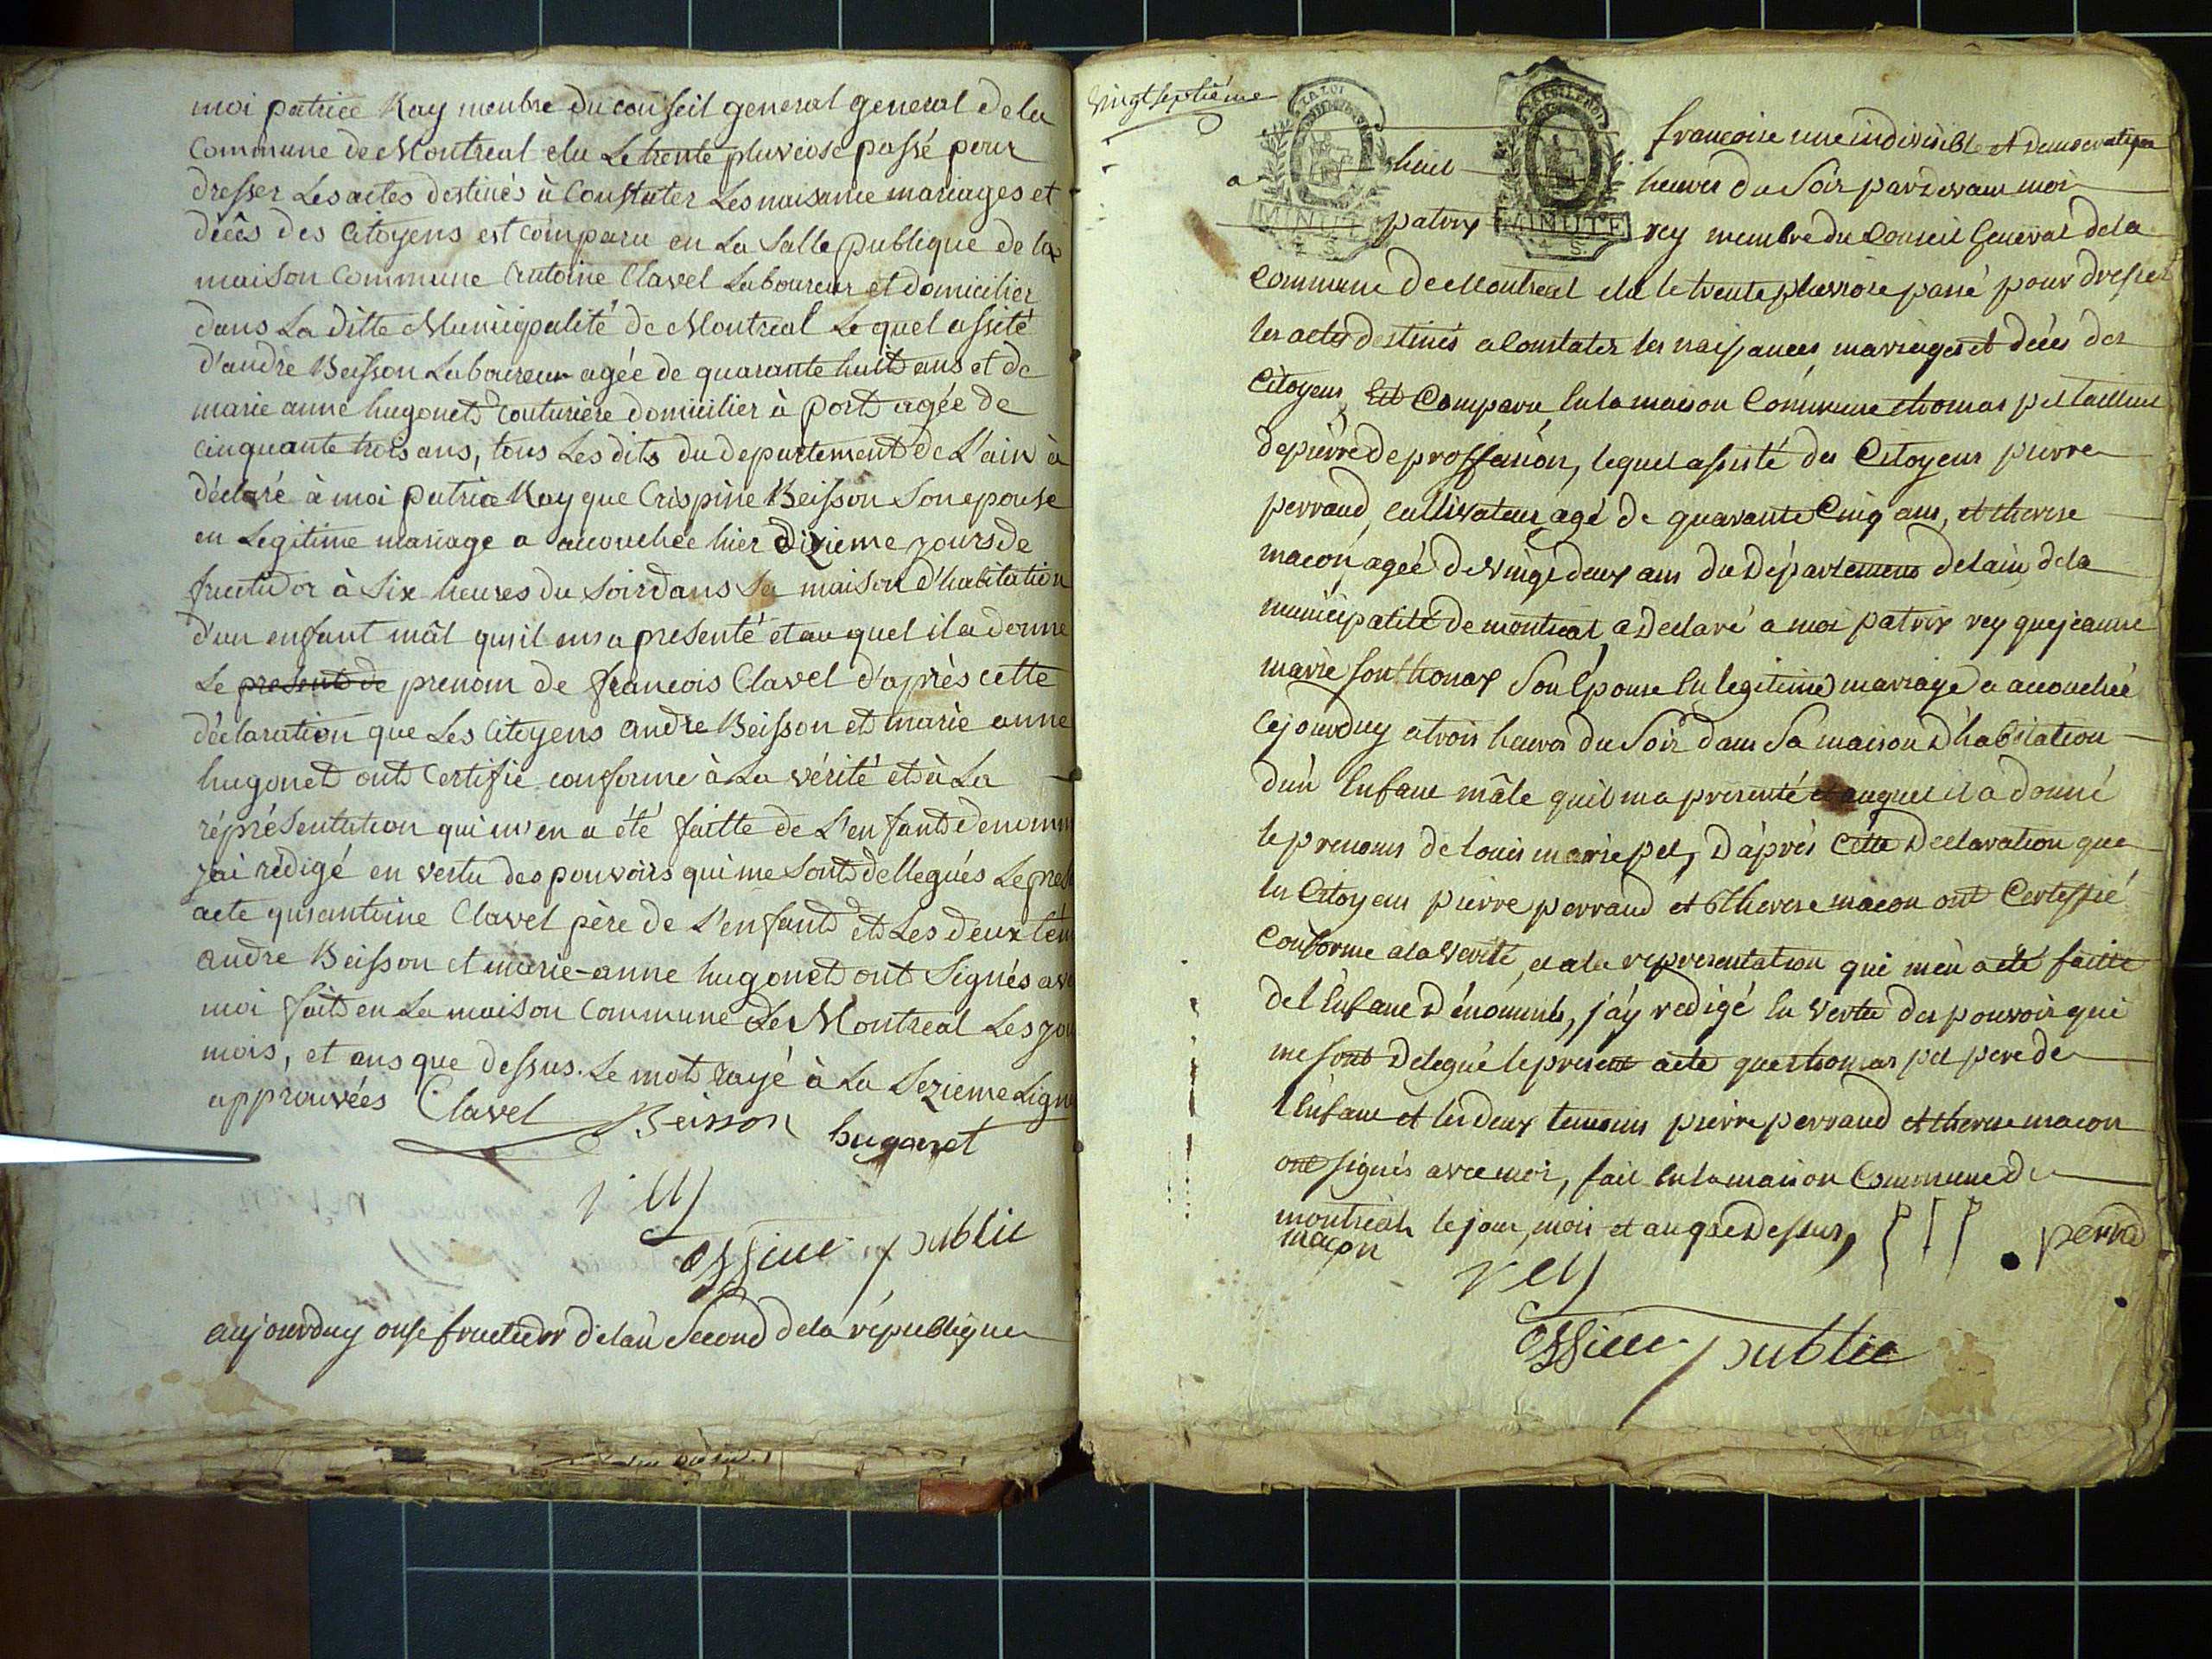 moi patrice Ray membre du conseil general general de la
Commune de Montreal elu Le trente pluviose passé pour
dresser Les actes destinés à Constater Les naisance mariages et
décês des Citoyens est comparu en La Salle publique de la
maison Commune Antoine Clavel Laboureur et domicilier
dans La ditte Municipalité de Montreal Le quel assité
d'andre Beisson Laboureur agée de quarante huit ans et de
marie anne hugonet couturière domicilier à port agée de
cinquante trois ans, tous Les dits du departement de L'ain à
déclaré à moi patrice Ray que Crispine Beisson Son epouse
en Legitime mariage a accouchée hier dixieme jours de
fructidor à Six heures du Soir dans Sa maison d'habitation
d'un enfant mâl qu'il m'a presenté et au quel il a donne
Le present de prenom de francois Clavel d'après cette
déclaration que Les Citoyens andre Beisson et marie anne
hugonet ont Certifié conforme à La vérité et à La
réprésentation qui m'en a été faitte de L'enfant denomm
jai rédigé en vertu des pouvoirs qui me Sont dellegués Le pres
acte qu'antoine Clavel père de L'enfant et Les deux tém
andre Beisson et marie-anne hugonet ont Signés av
moi fait en La maison Commune de Montreal Les jou
mois, et ans que dessus. Le mot rayé à La Sezieme Ligne
approuvées Clavel Beisson hugonet
rey
officier public
aujourduy onse fructidor delan Second dela république
vingt septième
LA LOI
MINUTE
4 S.
MINUTE
4 S.
francoise une indivisible et democratique
a huit heures du Soir pardevant moi
patrix rey membre du Conseil General dela
Commune de Montreal elu le trente pluviose passé pour dresser
les actes destinés a Constater les naissances mariages et décés des
Citoyens Est Comparu En la maison Commune thomas pel tailleur
de pierre de proffession, lequel assisté des Citoyens pierre
perraud cultivateur agé de quarante Cinq ans, et therese
macon agée de vingt deux ans du Département delain dela
municipalité de montreal a Declaré a moi patrix rey que jeanne
marie sonthonax Son épouse En legitime mariage a accouchée
Cejourduy a trois heures du Soir dans Sa maison d'habitation
d'un Enfant mâle quil ma presenté et auquel il a donné
le prenoms de louis marie pel, D'aprés cette Declaration que
les Citoyens pierre perraud et therese macon ont Certiffié
Conforme a la verité, et a la representation qui m'en a été faitte
de l'Enfant Dénommé, j'ay redigé En Vertu des pouvoir qui
me sont Delegué le present acte que thomas pel pere de
l'Enfant et les deux temoins pierre perraud et therese macon
ont signés avec moi, fait En la maison Commune de
montreal le jour, mois et an que Dessus, perrd
macon
rey
officier public